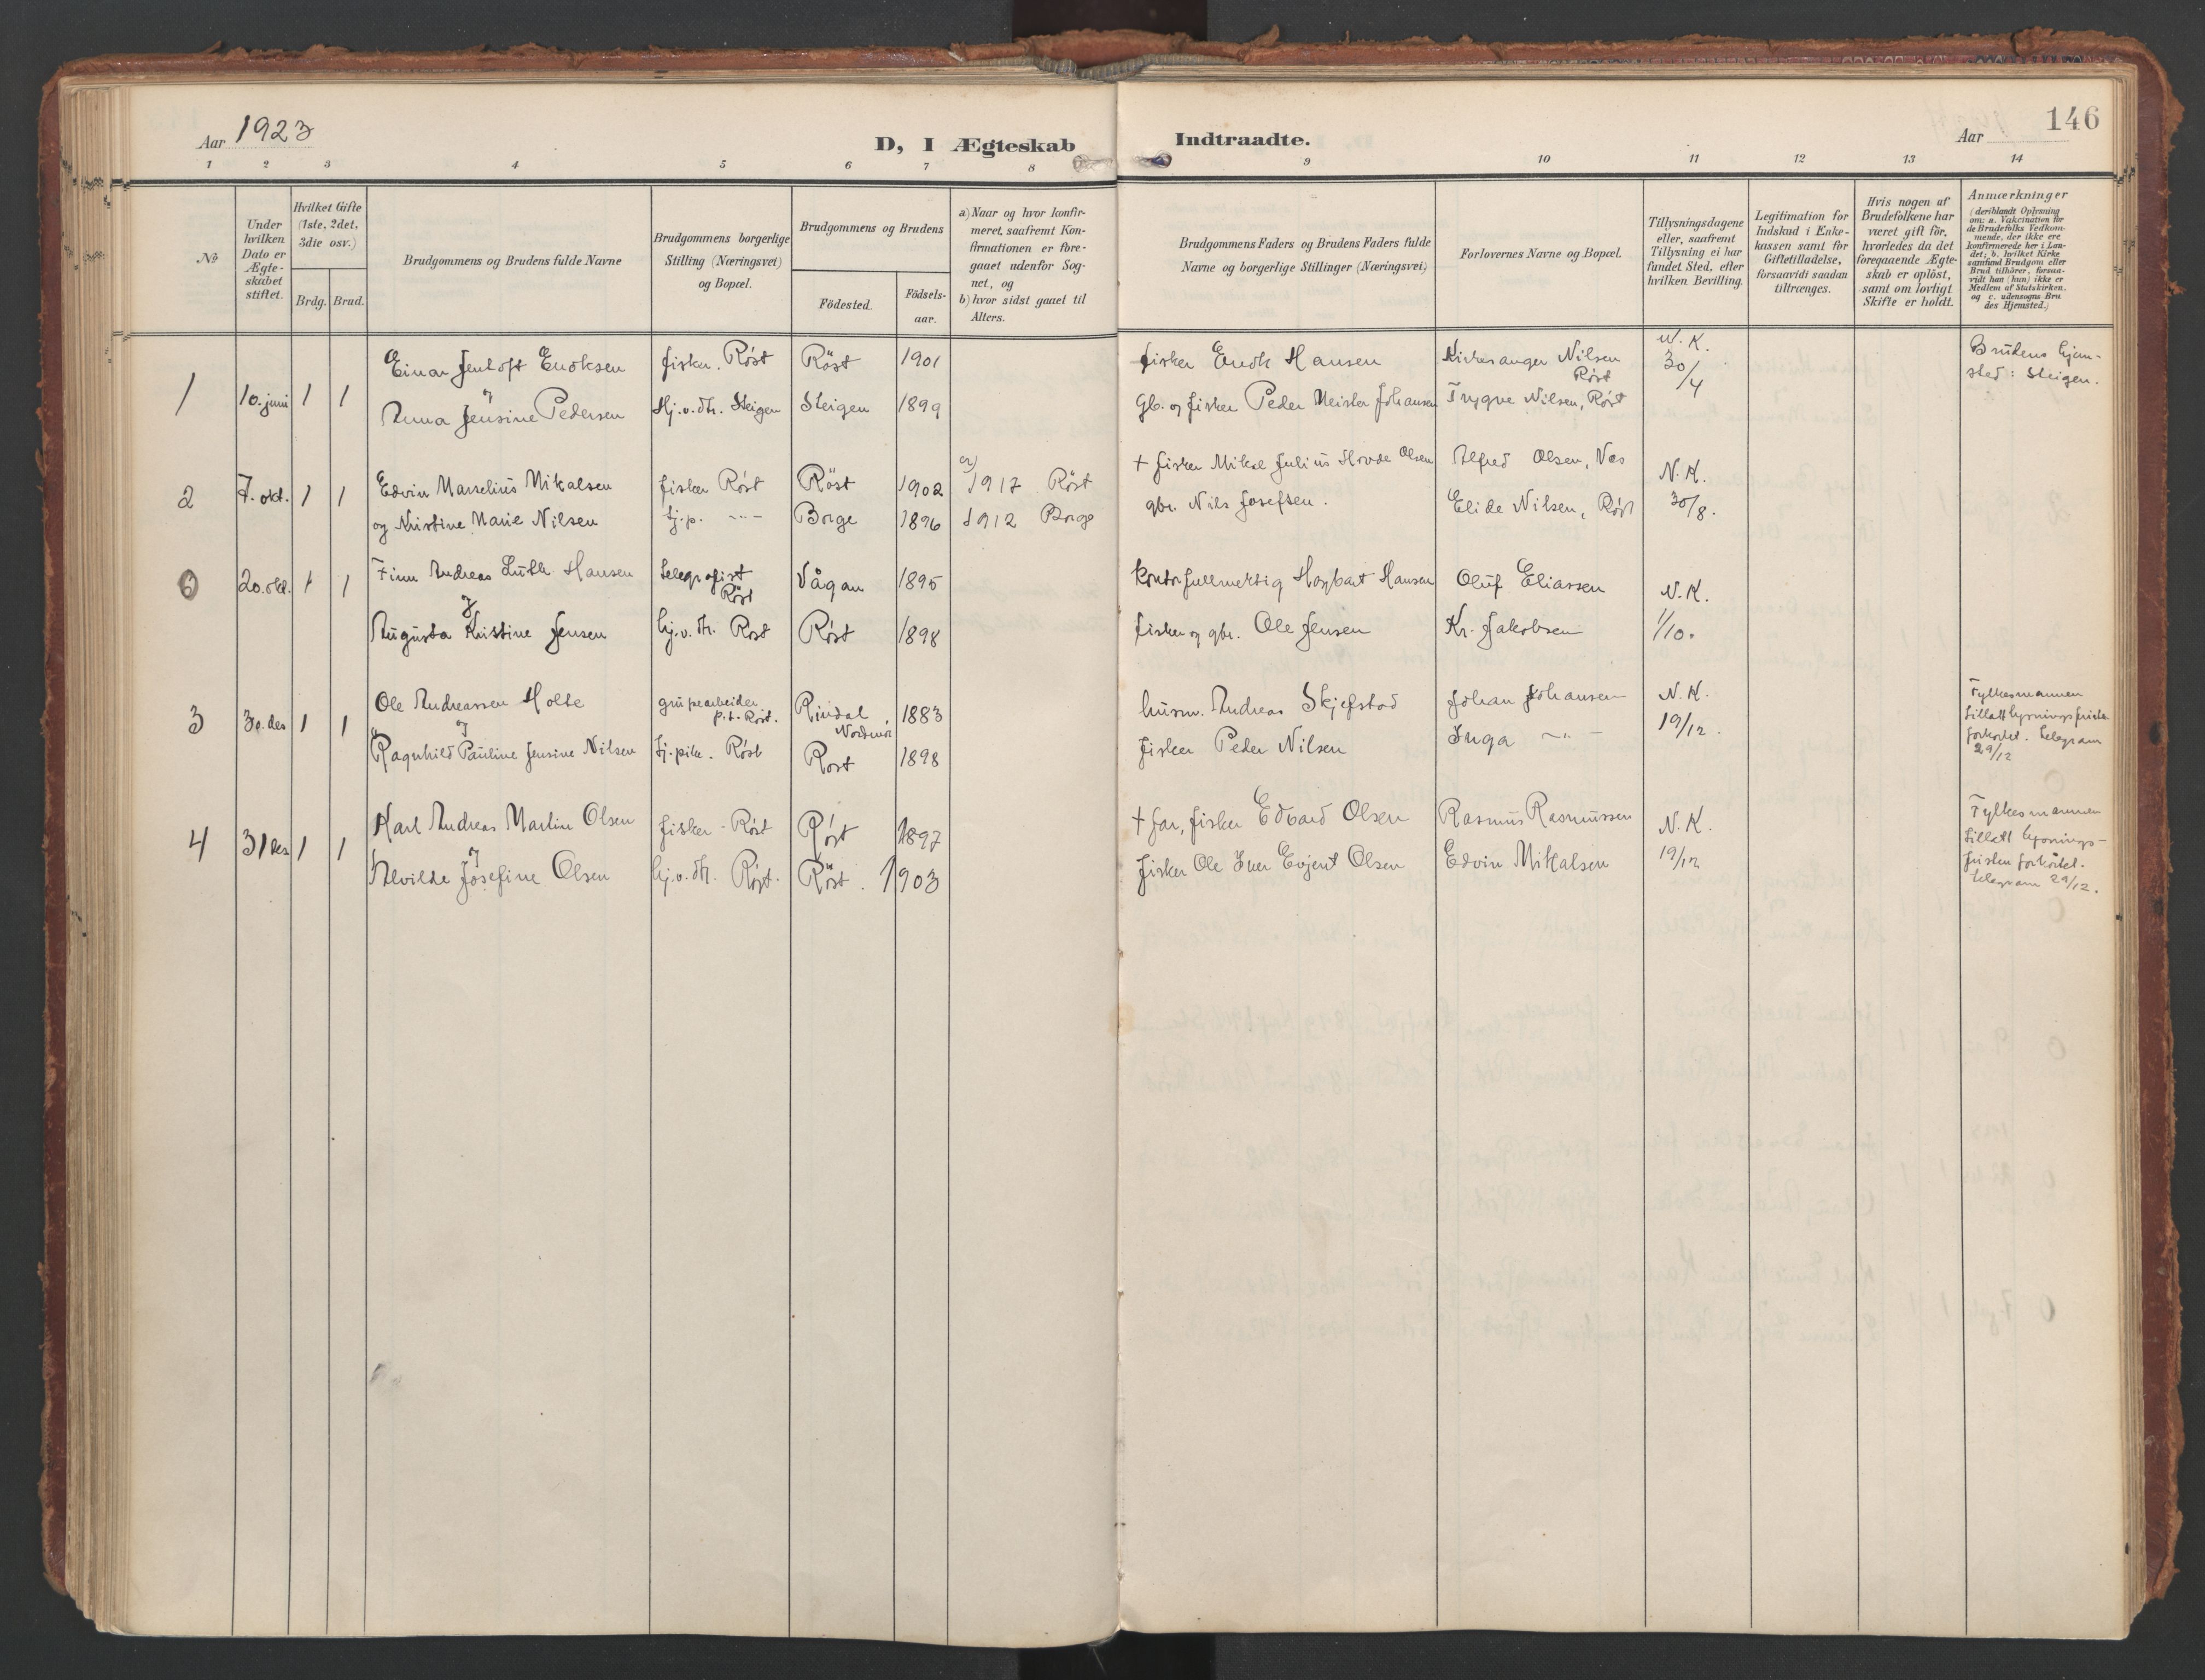 Aar 1923
D, I Ægteskab Indtraadte.
Aar
146
1 2 3 4 5 6 7 8 9 10 11 12 13 14
No
Under hvilken Dato er Ægte-skabet stiftet.
Hvilket Gifte (1ste, 2det, 3die osv.)
Brdg. Brud.
Brudgommens og Brudens fulde Navne
Brudgommens borgerlige Stilling (Næringsvei) og Bopæl.
Brudgommens og Brudens
Födested.
Födsels-aar.
a) Naar og hvor konfir-meret, saafremt Kon-firmationen er fore-gaaet udenfor Sog-net, og
b) hvor sidst gaaet til Alters.
Brudgommens Faders og Brudens Faders fulde Navne og borgerlige Stillinger (Næringsvei)
Forlovernes Navne og Bopæl.
Tillysningsdagene eller, saafremt Tillysning ei har fundet Sted, efter hvilken Bevilling.
Legitimation for Indskud i Enke-kassen samt for Giftetilladelse, forsaavidt saadan tiltrænges.
Hvis nogen af Brudefolkene har været gift før, hvorledes da det foregaaende Ægte-skab er oplöst, samt om lovligt Skifte er holdt.
Anmærkninger
(deriblandt Oplysning om: a. Vakcination for de Brudefolks Vedkom-mende, der ikke ere konfirmerede her i Lan-det; b. hvilket Kirke samfund Brudgom eller Brud tilhörer, forsaa-vidt han (hun) ikke er Medlem af Statskirken. og c. udensogns Bru des Hjemsted.)
1 10. juni 1 1 Einar Jentoft Enoksen fisker. Røst Röst 1901 fisker Enok Hansen Kirkesanger Nilsen Røst N. K. 30/4 Brudens hjem-sted: Steigen.
og
Anna Jensine Pedersen Hj.v.dtr. Steigen Steigen 1899 Gb. og fisker Peder Meisler Johansen Trygve Nilsen, Røst
2 7. okt. 1 1 Edvin Marselius Mikalsen fisker Røst Röst 1902 a) 1917 Röst + fisker Mikal Julius Hovde Olsen Alfred Olsen, N. K. 30/8.
og Kristine Marie Nilsen tj.p. -"- Borge 1896 1912 Borge gbr. Nils Josefsen. Elide Nilsen, Røst
0 20. okt. 1 1 Finn Andreas Luth Hansen telegrafist Røst Vågan 1895 kontorfullmektig Hagbart Hansen Oluf Eliassen N. K. 1/10.
og
Augusta Kristine Jensen hj.v.dtr. Røst Røst 1898 fisker og gbr. Ole Jensen Kr. Jakobsen
3 30. des 1 1 Ole Andreassen Holte grupearbeider p.t. Røst. Rindal, Nordmør 1883 husm. Andreas Skjefstad Johan Johansen N. K. 19/12. Fylkesmannen tillatt lysningsfristen forkortet. telegram 29/12
og
Ragnhild Pauline Jensine Nilsen tj.pike. Røst Røst 1898 fisker Peder Nilsen Inga -"-
4 31 des 1 1 Karl Andreas Martin Olsen fisker - Røst Røst 1897 + far, fisker Edvard Olsen Rasmus Rasmussen N. K. 19/12 Fylkesmannen tillatt lysnings-fristen forkortet. telegram 29/12.
og
Alvilde Josefine Olsen hj.v.dtr. Røst. Röst. 1903 fisker Ole Iver Evjent Olsen Edvin Mikalsen